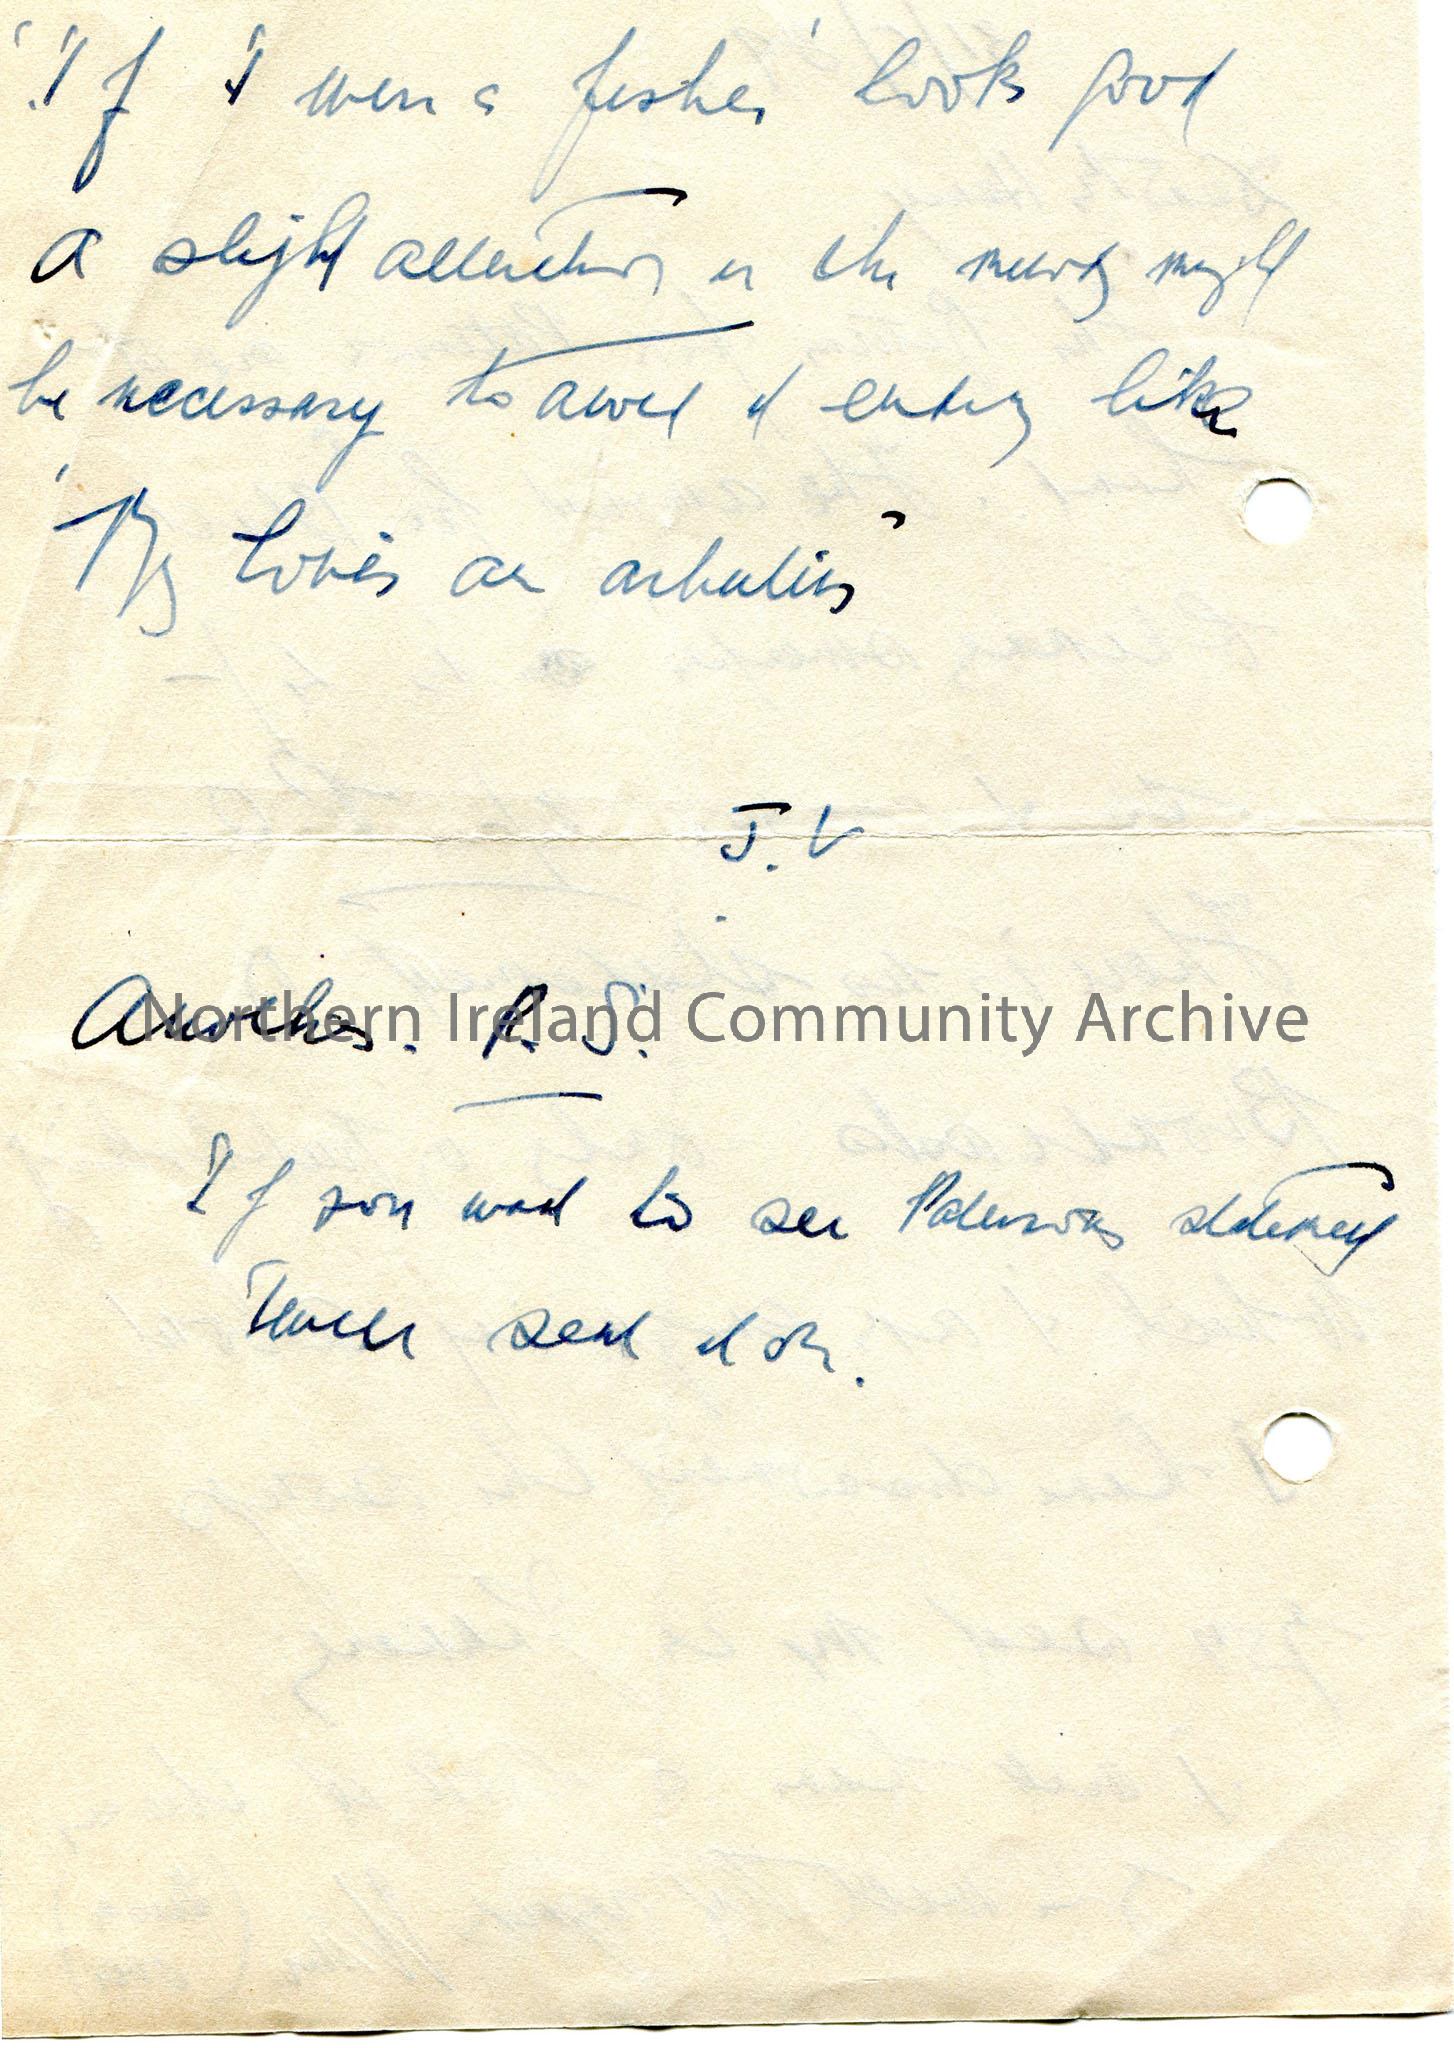 'If I were a fisher' looks good
A slight alteration in the melody might
be necessary to avoid it ending like
'My Love's an arbutus"
J.V
Another. P.S.
If you want to see Patersons statement
I will send it on.
Northern Ireland Community Archive